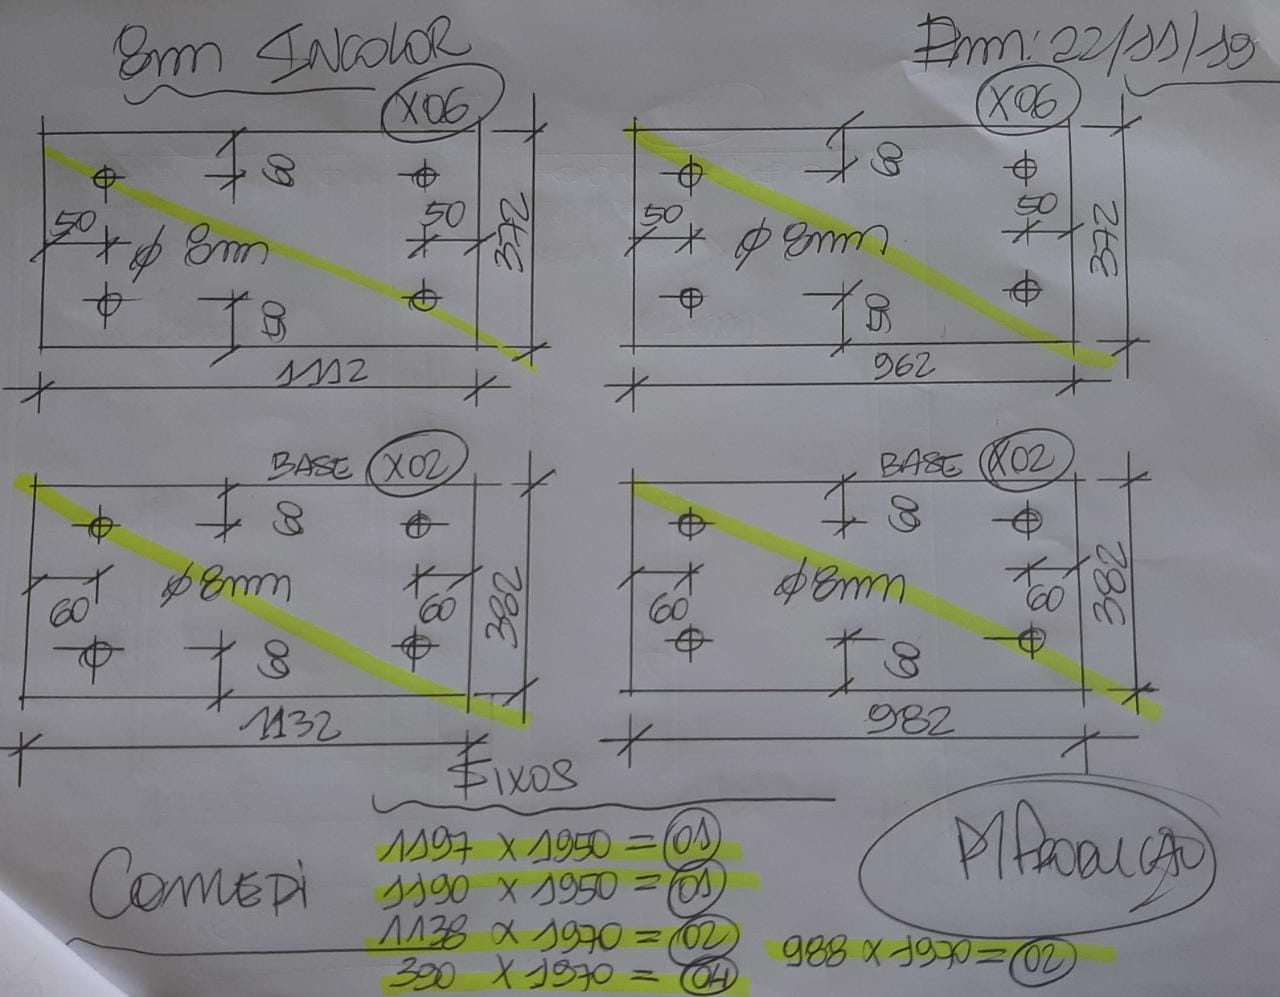 8mm INCOLOR
22/11/19
X06
X06
60
60
50
50
50
50
Ø 8mm
372
Ø 8mm
372
50
50
1112
962
BASE X02
BASE X02
60
60
Ø 8mm
382
Ø 8mm
382
60
60
60
60
60
60
1132
982
FIXOS
1197 X 1950 = 01
1190 X 1950 = 01
1138 X 1970 = 02
390 X 1970 = 04
988 X 1970 = 02
COMEDI
P/ PRODUÇÃO